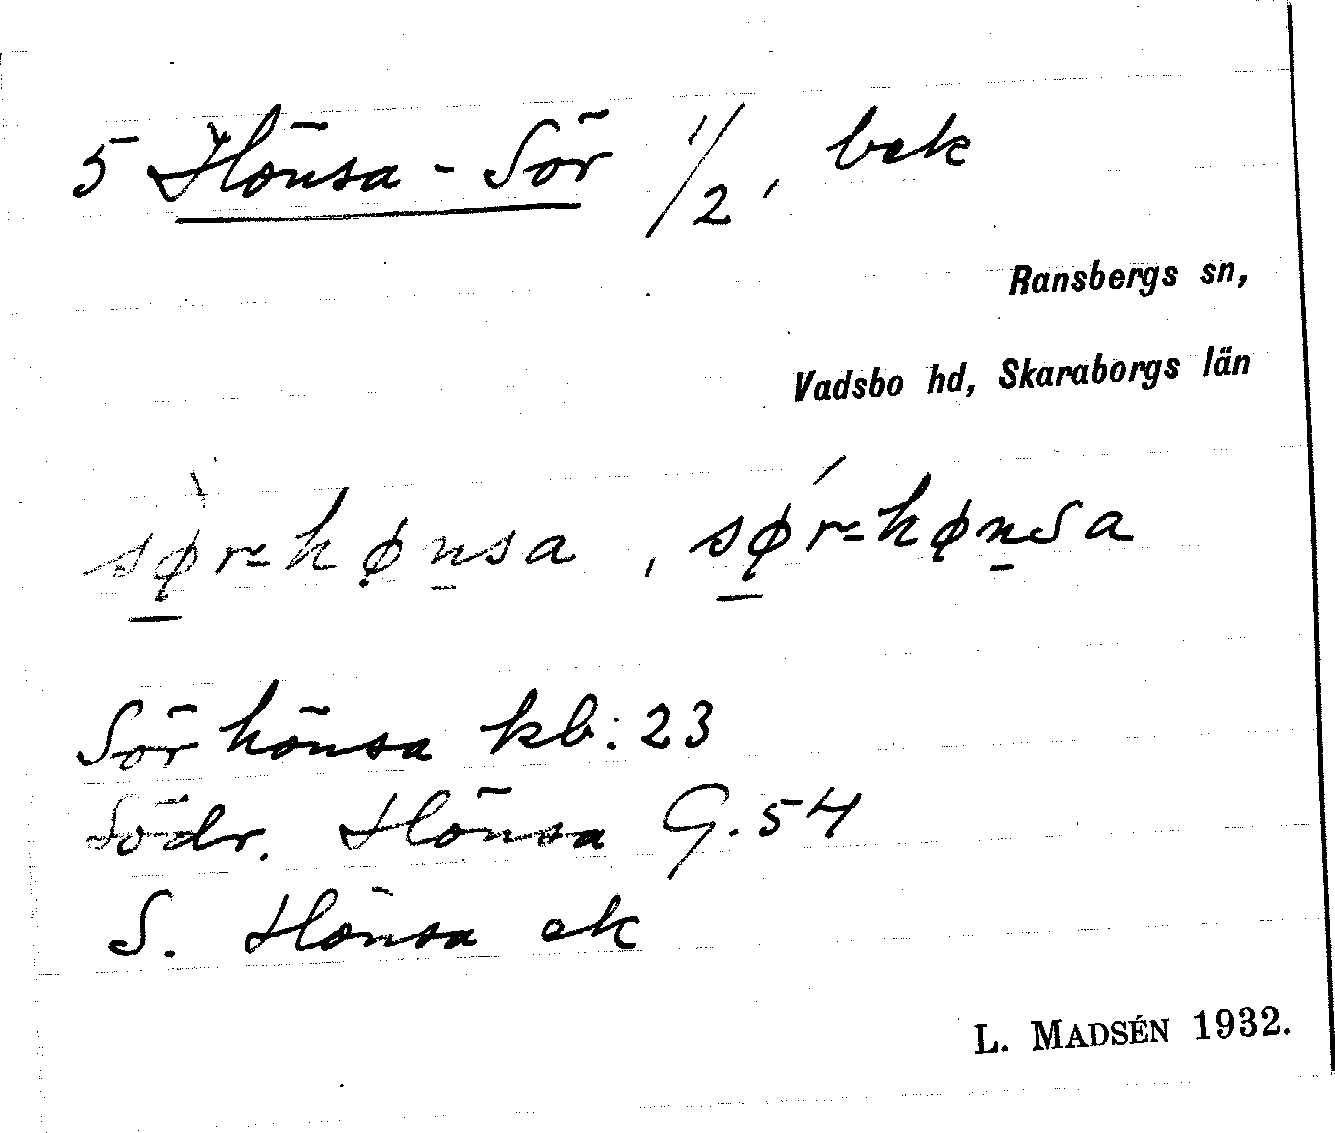 5 Hönsa - Sör 1/2, bek
Ransbergs sn,
Vadsbo hd, Skaraborgs län
sø̀r-hønsa , sǿr-hønsa
Sörhönsa kb: 23
Södr. Hönsa G. 54
S. Hönsa ek
L. MADSÉN 1932.